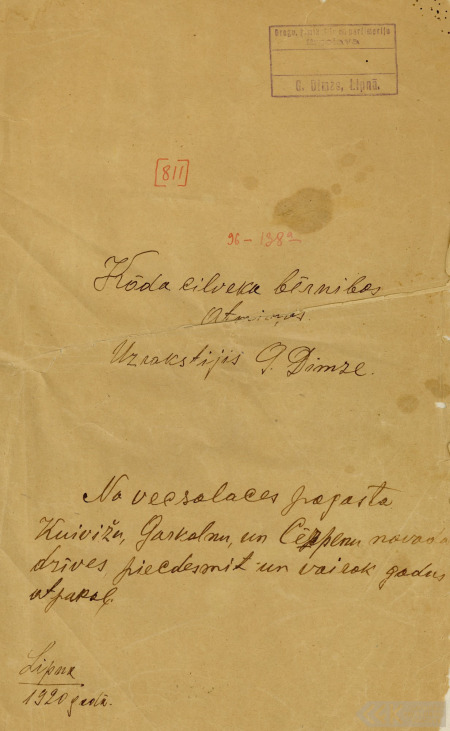 G. Dimze, Lipnā.
[811]
96 - 138
Kōda cilveka bērnibas
atmiņas.
Uzrakstijis G. Dimze.
No vecsalaces pagasta
Kuivižu, Garkalnu, un novada
dzives piecdesmit un vairok godus
atpakaļ.
Lipna
1920 gadā.